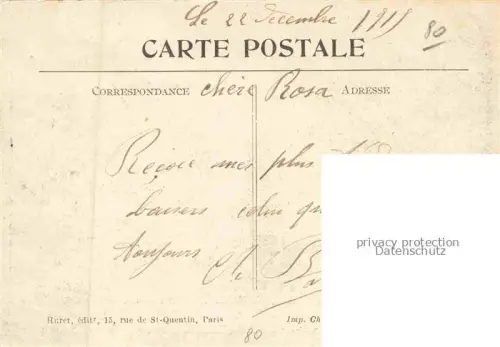 Le 22 Décembre 1915
80
CARTE POSTALE
CORRESPONDANCE chère Rosa ADRESSE
Reçois mes plus
baisers celui qu
toujours
privacy protection
Datenschutz
Ruret, édit^r, 15, rue de St-Quentin, Paris Imp. Ch
80